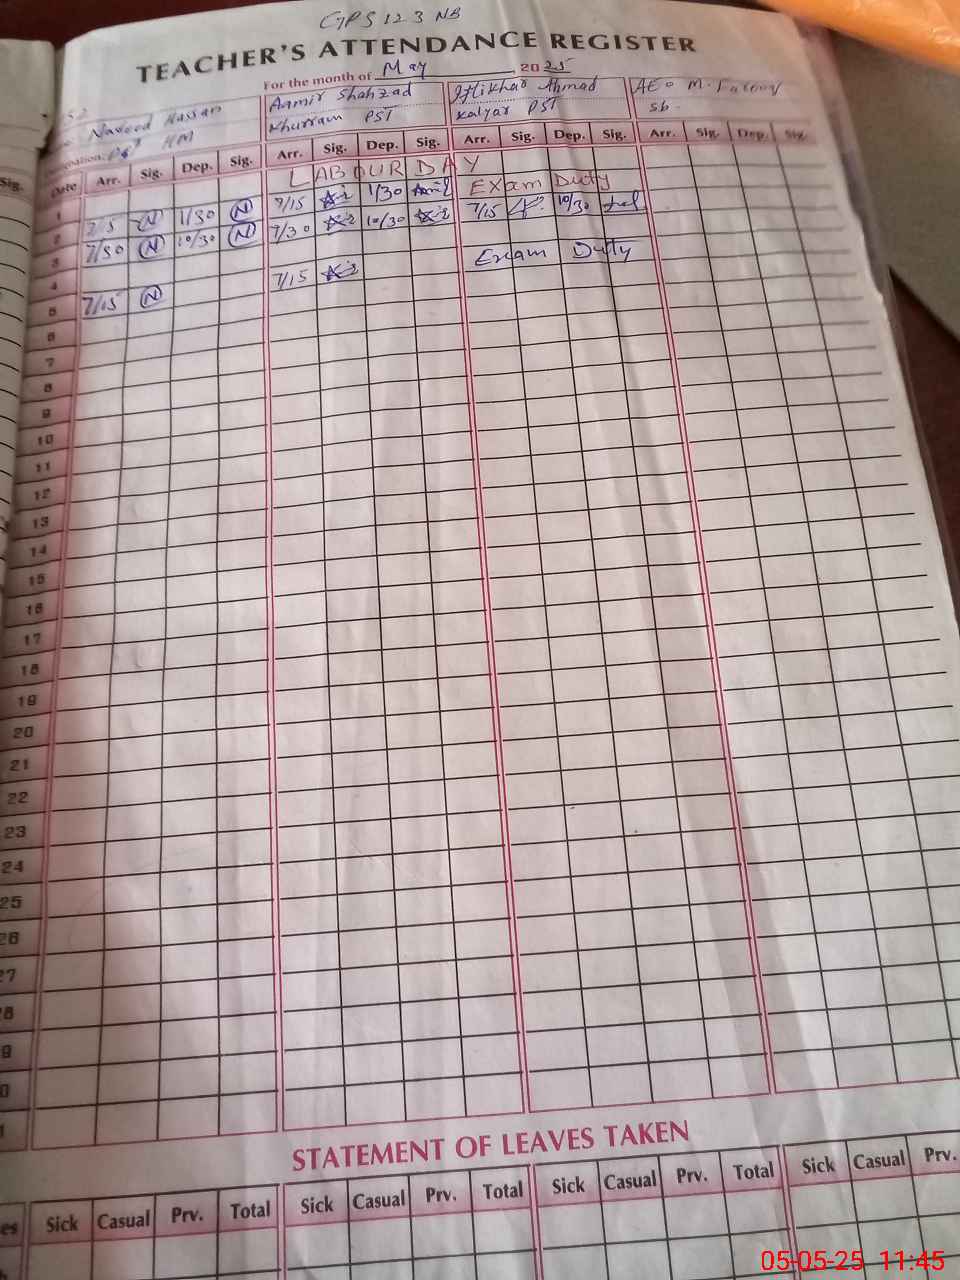 GPS 123 NB
TEACHER'S ATTENDANCE REGISTER
For the month of May 2025
Naveed Hassan Aamir Shahzad Iftikhar Ahmad AEO M. Farooq
PST HM Khurram PST Kalyar PST Sb.
Date Arr. Sig. Dep. Sig. Arr. Sig. Dep. Sig. Arr. Sig. Dep. Sig. Arr. Sig. Dep. Sig.
1 LABOUR DAY
2 7/15 N 1/30 N 7/15 1/30 Exam Duty
3 7/30 N 10/30 N 7/30 10/30 7/15 10/30
4
5 7/15 N 7/15 Exam Duty
6
7
8
9
10
11
12
13
14
15
16
17
18
19
20
21
22
23
24
25
26
27
8
9
0
1
STATEMENT OF LEAVES TAKEN
Sick Casual Prv. Total Sick Casual Prv. Total Sick Casual Prv. Total Sick Casual Prv.
05-05-25 11:45